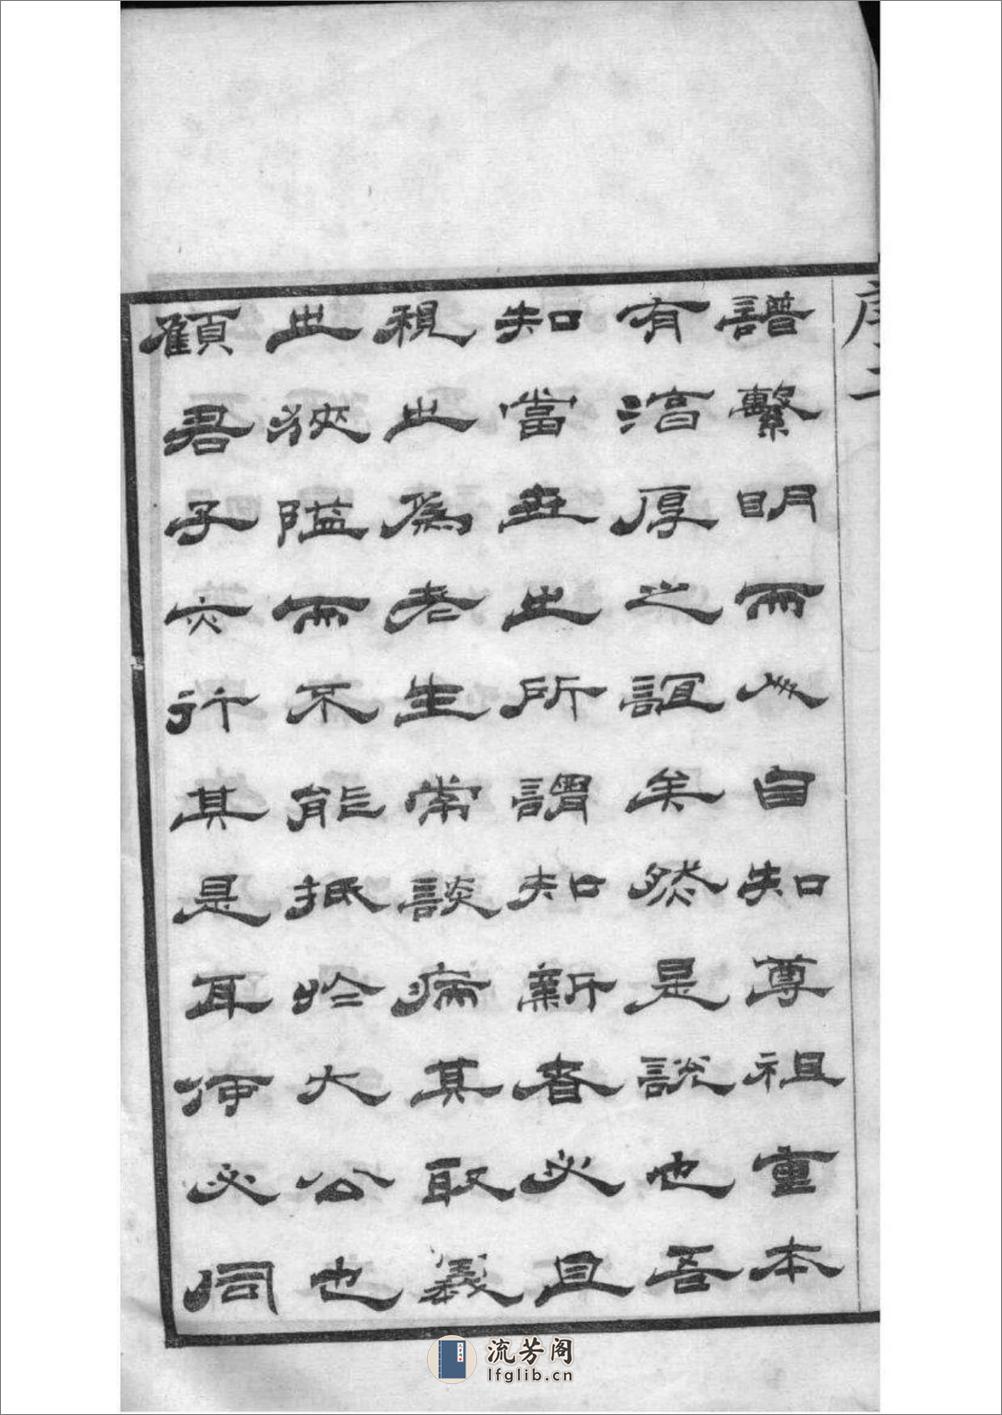 序二
譜繫明而人自知尊祖重本
有湻厚之誼矣然是說也吾
知當世之所謂知新者必且
視之爲老生常談病其取義
之狹隘而不能抵於大公也
顧君子亦行其是耳何必同
流芳阁
lfglib.cn